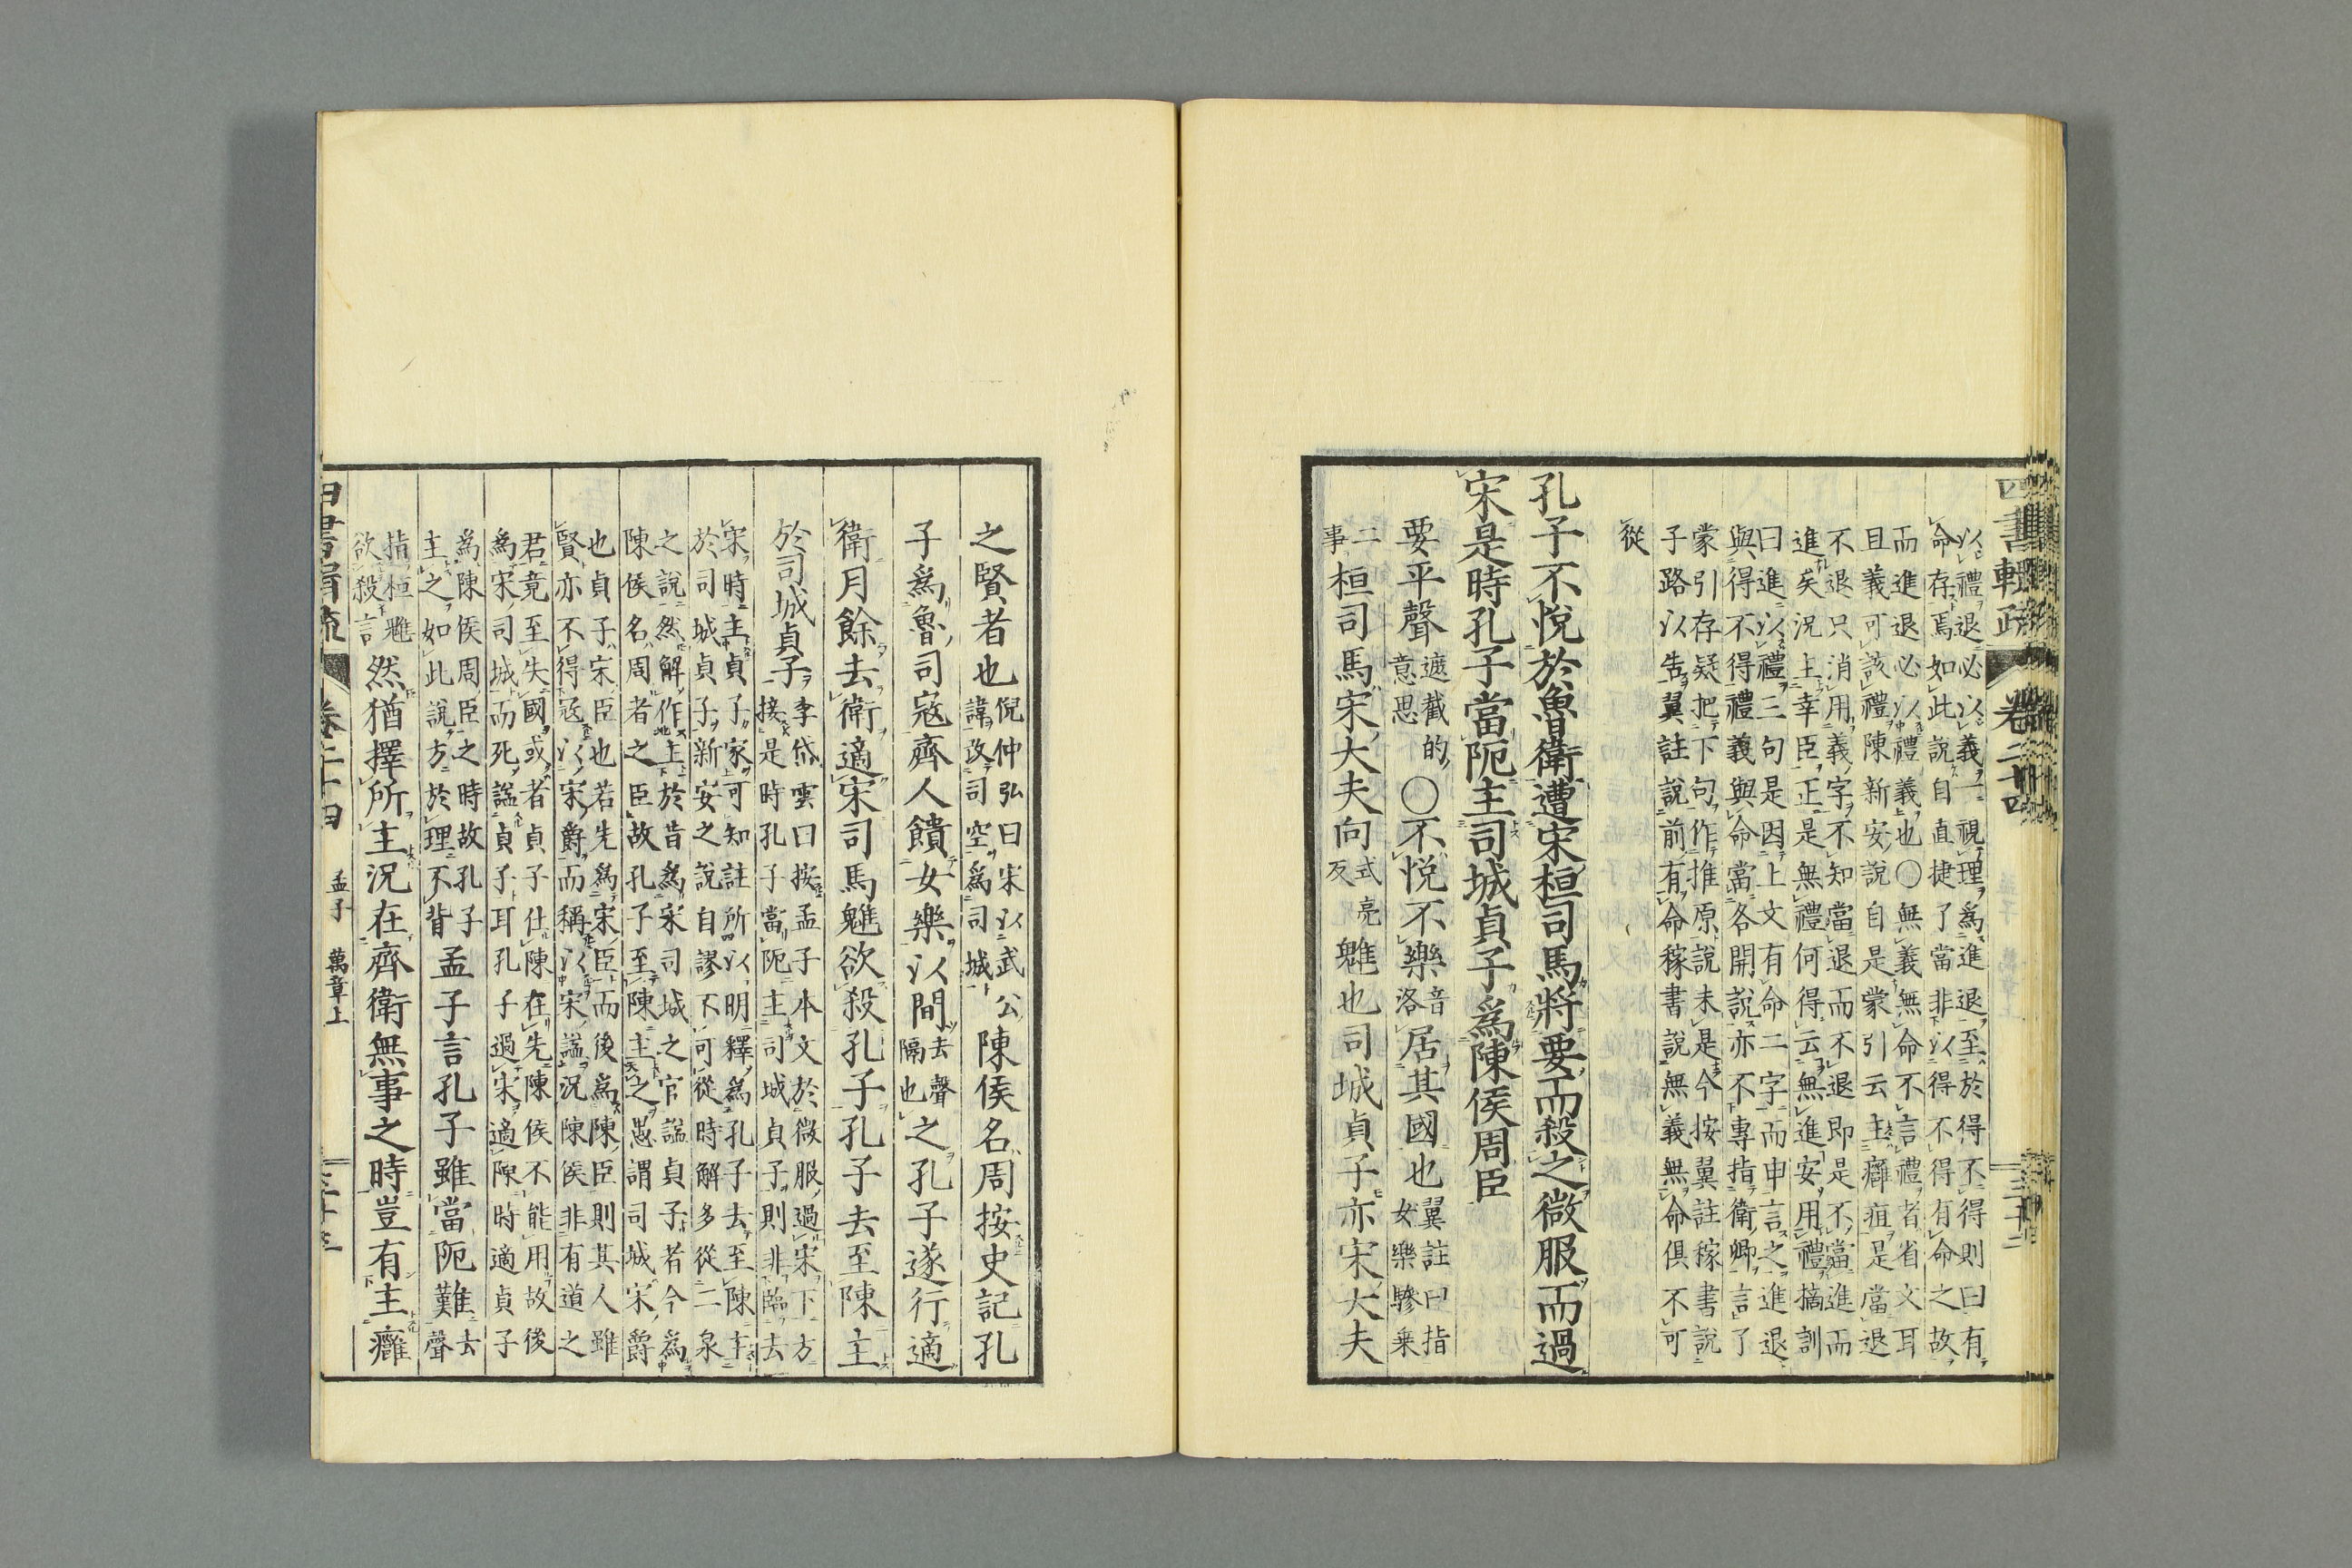 以禮退必以義一視理爲進退至於得不得則曰有
命存焉如此說自直捷了當非以得不得有命之故
而進退必以禮義也〇無義無命不言禮者省文耳
且義可該禮陳新安說自是蒙引云主癰疽是當退
不退只消用義字不知當退而不退即是不當進而
進矣況主幸臣正是無禮何得云無進安用禮摘訓
曰進以禮三句是因上文有命二字而申言之進退
與得不得禮義與命當各開說亦不專指衛卿言了
蒙引存疑把下句作推原說未是今按翼註稼書說
子路以告翼註說前有命稼書說無義無命俱不可
從
孔子不悅於魯衛遭宋桓司馬將要而殺之微服而過
宋是時孔子當阨主司城貞子爲陳侯周臣
要平聲遮截的意思〇不悅不樂音洛居其國也翼註曰指女樂驂乘
二事桓司馬宋大夫向式亮反魋也司城貞子亦宋大夫
四書輯疏 卷二十四 三十二
之賢者也倪仲弘曰宋以武公諱改司空爲司城陳侯名周按史記孔
子爲魯司寇齊人饋女樂以間去聲隔也之孔子遂行適
衛月餘去衛適宋司馬魋欲殺孔子孔子去至陳主
於司城貞子李岱雲曰按孟子本文於微服過宋下方接是時孔子當阨主司城貞子則非臨去
宋時主貞子家可知註所以明釋爲孔子去至陳主
於司城貞子新安之說自謬不可從時解多從二泉
之說然解作主於昔爲宋司城之官諡貞子者今爲
陳侯名周者之臣故孔子至陳主之愚謂司城宋爵
也貞子宋臣也若先爲宋臣而後爲陳臣則其人雖
賢亦不得冦以宋爵而稱以宋諡況陳侯非有道之
君竟至失國或者貞子仕陳在先陳侯不能用故後
爲宋司城而死諡貞子耳孔子過宋適陳時適貞子
爲陳侯周臣之時故孔子
主之如此說方於理不背孟子言孔子雖當阨難去聲
指桓魋
欲殺言然猶擇所主況在齊衛無事之時豈有主癰
四書輯疏 卷二十四 孟子 萬章上 三十三